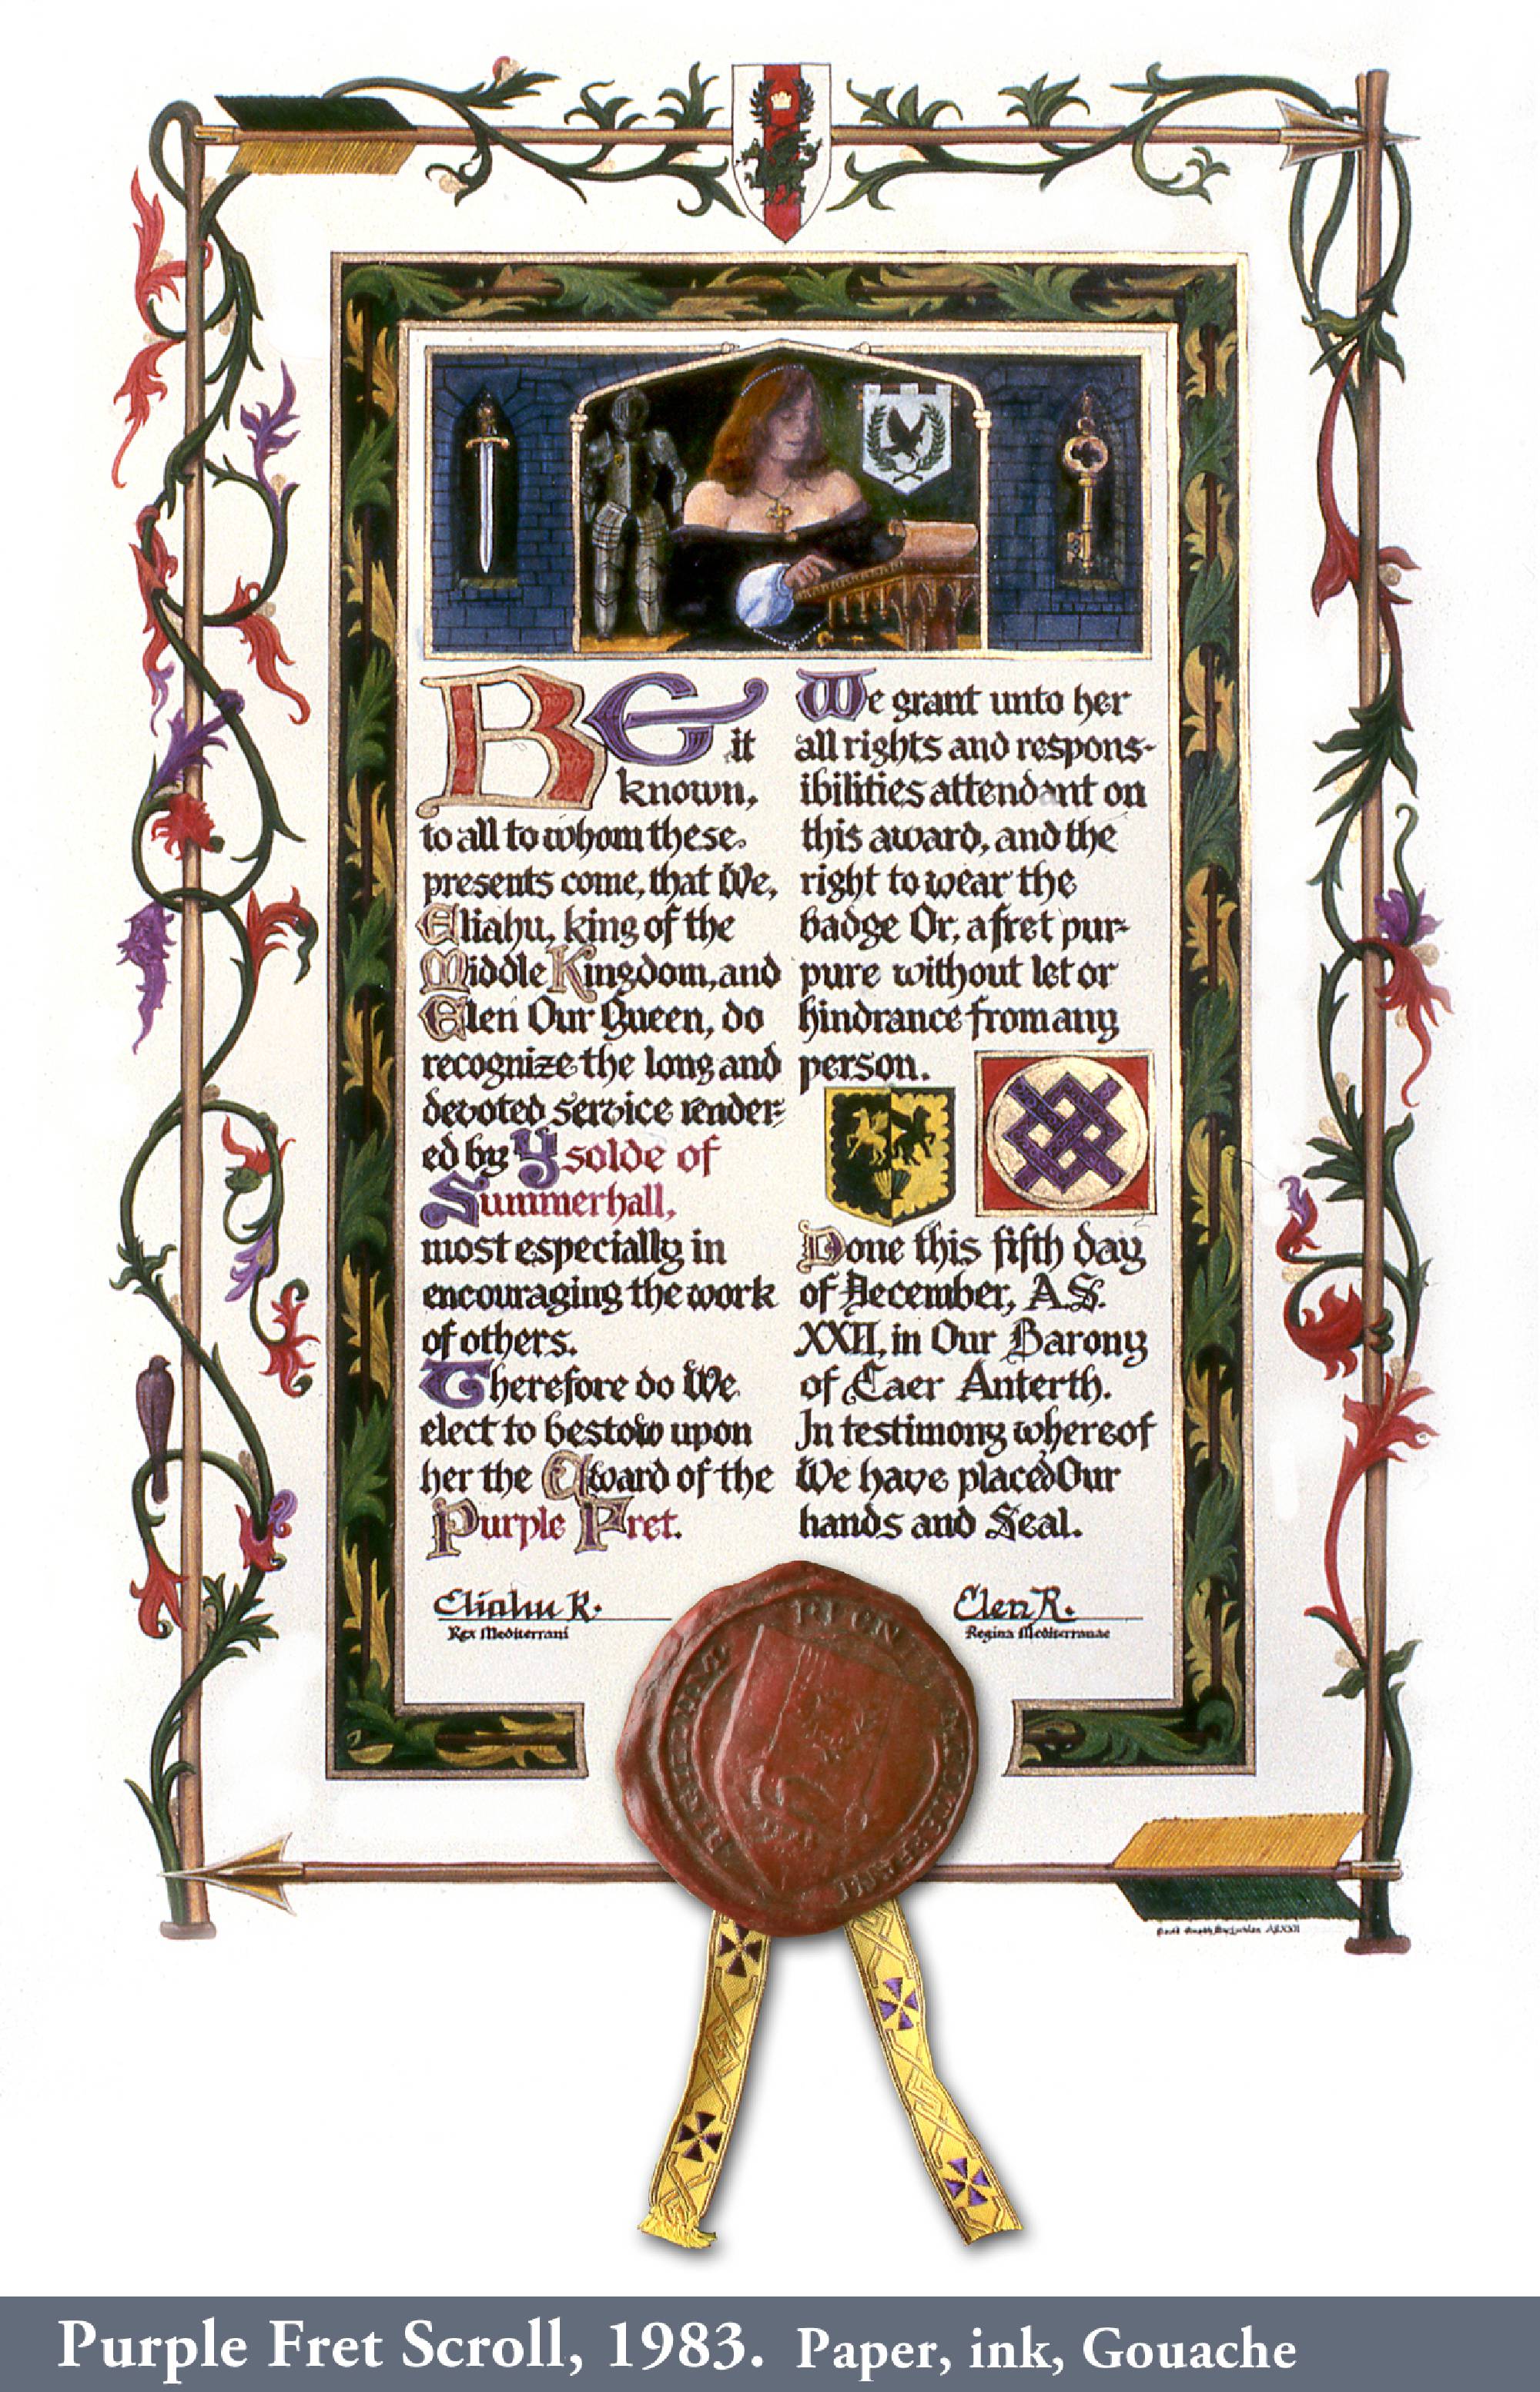 BE it
known,
to all to whom these
presents come, that We,
Eliahu, king of the
Middle Kingdom, and
Elen Our Queen, do
recognize the long and
devoted service render-
ed by Ysolde of
Summerhall,
most especially in
encouraging the work
of others.
Therefore do We
elect to bestow upon
her the Award of the
Purple Fret.
We grant unto her
all rights and respons-
ibilities attendant on
this award, and the
right to wear the
badge Or, a fret pur-
pure without let or
hindrance from any
person.
Done this fifth day
of December, A.S.
XXII, in Our Barony
of Caer Anterth.
In testimony whereof
We have placed Our
hands and Seal.
Eliahu R.
Rex Mediterrani
Elen R.
Regina Mediterranae
Purple Fret Scroll, 1983. Paper, ink, Gouache